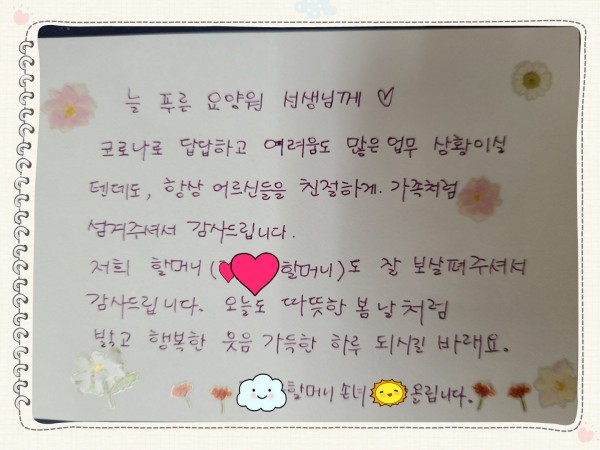 늘 푸른 요양원 선생님께 ♡
코로나로 답답하고 여려움도 많은 업무 상황이실
텐데도, 항상 어르신들을 친절하게. 가족처럼
섬겨주셔서 감사드립니다.
저희 할머니 ( 할머니)도 잘 보살펴주셔서
감사드립니다. 오늘도 따뜻한 봄날처럼
밝고 행복한 웃음 가득한 하루 되시길 바래요.
할머니 손녀 올립니다.